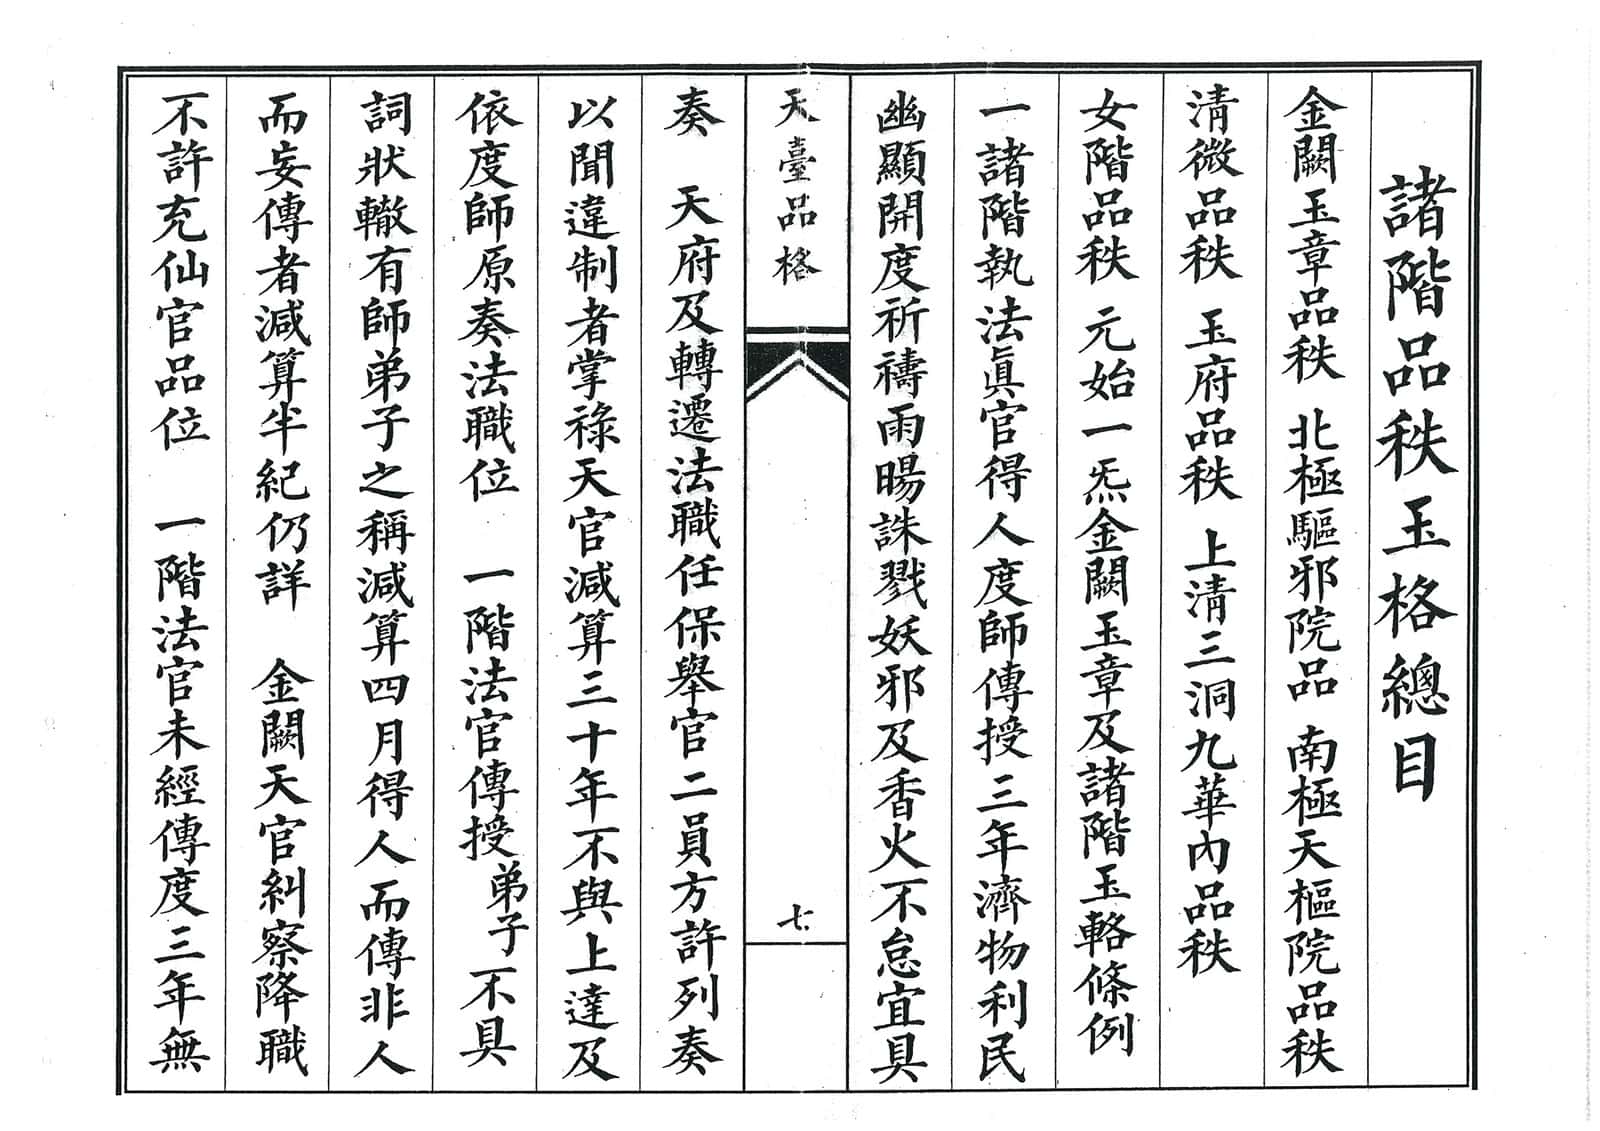 諸階品秩玉格總目
金闕玉章品秩　北極驅邪院品　南極天樞院品秩
清微品秩　玉府品秩　上清三洞九華內品秩
女階品秩　元始一炁金闕玉章及諸階玉輅條例
一諸階執法眞官得人度師傳授三年濟物利民
幽顯開度祈禱雨暘誅戮妖邪及香火不怠宜具
天臺品格
七
奏　天府及轉遷法職任保舉官二員方許列奏
以聞違制者掌祿天官減算三十年不與上達及
依度師原奏法職位　一階法官傳授弟子不具
詞狀轍有師弟子之稱減算四月得人而傳非人
而妄傳者減算半紀仍詳　金闕天官糾察降職
不許充仙官品位　一階法官未經傳度三年無